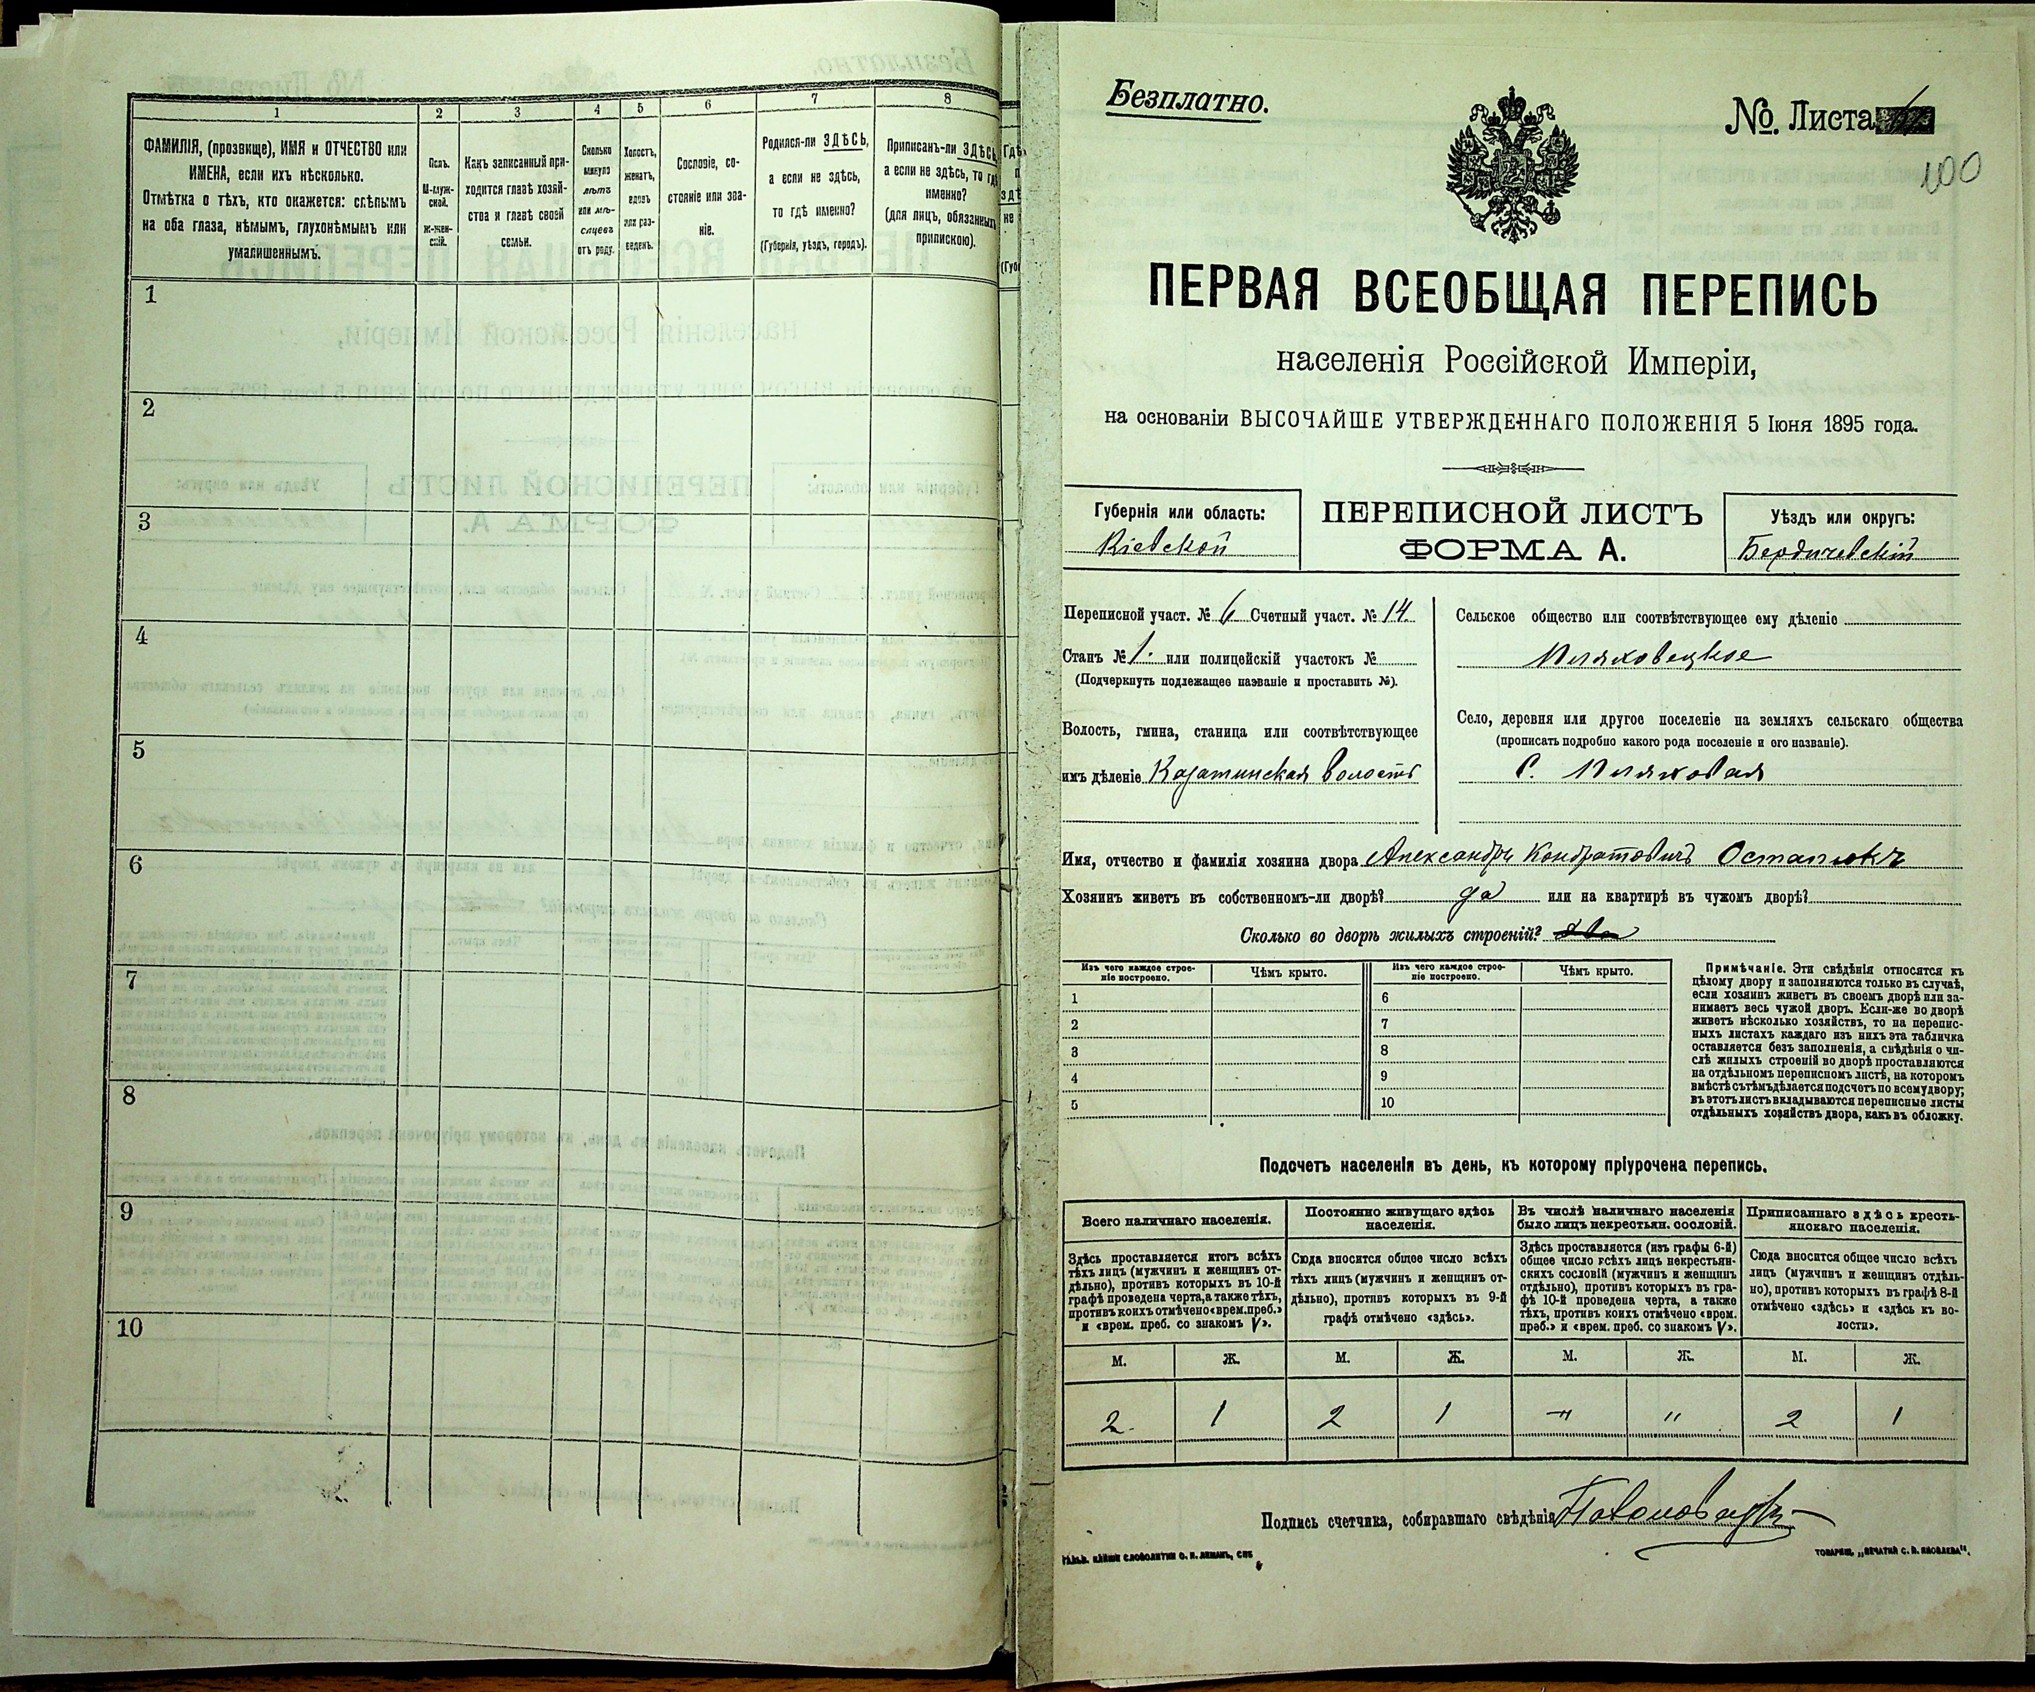 1
2
3
4
5
6
7
8
ФАМИЛІЯ, (прозвище), ИМЯ и ОТЧЕСТВО или
ИМЕНА, если ихъ нѣсколько.
Отмѣтка о тѣхъ, кто окажется: слѣпымъ
на оба глаза, нѣмымъ, глухонѣмымъ или
умалишеннымъ.
Полъ.
М-муж-
ской.
Ж-жен-
скій.
Какъ записанный при-
ходится главѣ хозяй-
ства и главѣ своей
семьи.
Сколько
минуло
лѣтъ
или мѣ-
сяцевъ
отъ роду.
Холостъ,
женатъ,
вдовъ
или раз-
веденъ.
Сословіе, со-
стояніе или зва-
ніе.
Родился-ли ЗДѢСЬ,
а если не здѣсь,
то гдѣ именно?
(Губернія, уѣздъ, городъ).
Приписанъ-ли ЗДѢСЬ,
а если не здѣсь, то гдѣ
именно?
(для лицъ, обязанныхъ
припискою).
1
2
3
4
5
6
7
8
9
10
Безплатно.
№. Листа
100
ПЕРВАЯ ВСЕОБЩАЯ ПЕРЕПИСЬ
населенія Россійской Имперіи,
на основаніи ВЫСОЧАЙШЕ УТВЕРЖДЕННАГО ПОЛОЖЕНІЯ 5 Іюня 1895 года.
Губернія или область:
Кіевской
ПЕРЕПИСНОЙ ЛИСТЪ
ФОРМА А.
Уѣздъ или округъ:
Бердичевскій
Переписной участ. № 6 Счетный участ. № 14.
Станъ № 1. или полицейскій участокъ №
(Подчеркнуть подлежащее названіе и проставить №).
Волость, гмина, станица или соотвѣтствующее
имъ дѣленіе Козатинская волость
Сельское общество или соотвѣтствующее ему дѣленіе
Пляховецкое
Село, деревня или другое поселеніе на земляхъ сельскаго общества
(прописать подробно какого рода поселеніе и его названіе).
С. Пляховая
Имя, отчество и фамилія хозяина двора Александръ Кондратовичъ Остапюкъ
Хозяинъ живетъ въ собственномъ-ли дворѣ? да или на квартирѣ въ чужомъ дворѣ?
Сколько во дворѣ жилыхъ строеній? два
Изъ чего каждое строе-
ніе построено.
Чѣмъ крыто.
Изъ чего каждое строе-
ніе построено.
Чѣмъ крыто.
1
2
3
4
5
6
7
8
9
10
Примѣчаніе. Эти свѣдѣнія относятся къ
цѣлому двору и заполняются только въ случаѣ,
если хозяинъ живетъ въ своемъ дворѣ или за-
нимаетъ весь чужой дворъ. Если-же во дворѣ
живетъ нѣсколько хозяйствъ, то на перепис-
ныхъ листахъ каждаго изъ нихъ эта табличка
оставляется безъ заполненія, а свѣдѣнія о чи-
слѣ жилыхъ строеній во дворѣ проставляются
на отдѣльномъ переписномъ листѣ, на которомъ
вмѣстѣ съ тѣмъ дѣлается подсчетъ по всему двору;
въ этотъ листъ вкладываются переписные листы
отдѣльныхъ хозяйствъ двора, какъ въ обложку.
Подсчетъ населенія въ день, къ которому пріурочена перепись.
Всего наличнаго населенія.
Здѣсь проставляется итогъ всѣхъ
тѣхъ лицъ (мужчинъ и женщинъ от-
дѣльно), противъ которыхъ въ 10-й
графѣ проведена черта, а также тѣхъ,
противъ коихъ отмѣчено «врем. преб.»
и «врем. преб. со знакомъ V».
Постоянно живущаго здѣсь
населенія.
Сюда вносится общее число всѣхъ
тѣхъ лицъ (мужчинъ и женщинъ от-
дѣльно), противъ которыхъ въ 9-й
графѣ отмѣчено «здѣсь».
Въ числѣ наличнаго населенія
было лицъ некрестьян. сословій.
Здѣсь проставляется (изъ графы 6-й)
общее число всѣхъ лицъ некрестьян-
скихъ сословій (мужчинъ и женщинъ
отдѣльно), противъ которыхъ въ гра-
фѣ 10-й проведена черта, а также
тѣхъ, противъ коихъ отмѣчено «врем.
преб.» и «врем. преб. со знакомъ V».
Приписаннаго здѣсь кресть-
янскаго населенія.
Сюда вносится общее число всѣхъ
лицъ (мужчинъ и женщинъ отдѣль-
но), противъ которыхъ въ графѣ 8-й
отмѣчено «здѣсь» и «здѣсь къ во-
лости».
М. Ж. М. Ж. М. Ж. М. Ж.
2 1 2 1 " " 2 1
Подпись счетчика, собиравшаго свѣдѣнія
ТОВАРИЩ. „ПЕЧАТНИ С. П. ЯКОВЛЕВА".